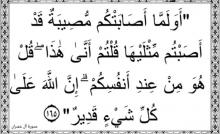 "أَوَلَمَّا أَصَابَتْكُم مُّصِيبَةٌ قَدْ
أَصَبْتُم مِّثْلَيْهَا قُلْتُمْ أَنَّىٰ هَٰذَا ۖ قُلْ
هُوَ مِنْ عِندِ أَنفُسِكُمْ ۗ إِنَّ اللَّهَ عَلَىٰ
كُلِّ شَيْءٍ قَدِيرٌ" ﴿١٦٥﴾
سورة آل عمران